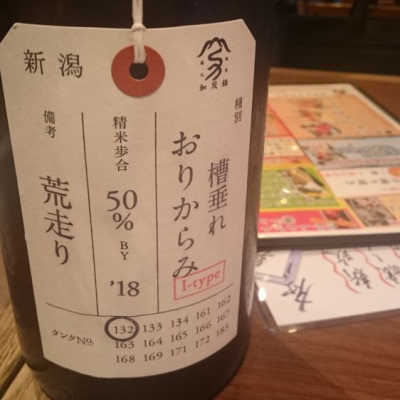 新潟
加茂錦
種別
槽垂れ
おりがらみ
I-type
精米歩合
50%
BY
'18
備考
荒走り
タンクNo.
132 133 134 161 162
163 164 165 166 167
168 169 171 172 183